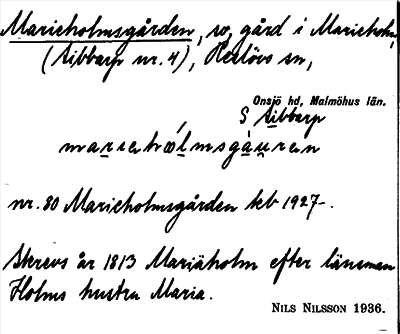 Marieholmsgården, so, gård i Marieholm,
(Sibbarp nr. 4), Reslövs sn,
Onsjö hd, Malmöhus län.
S Sibbarp
nr. 30 Marieholmsgården kb 1927-.
Skrevs år 1813 Mariäholm efter länsman
Holms hustru Maria.
NILS NILSSON 1936.